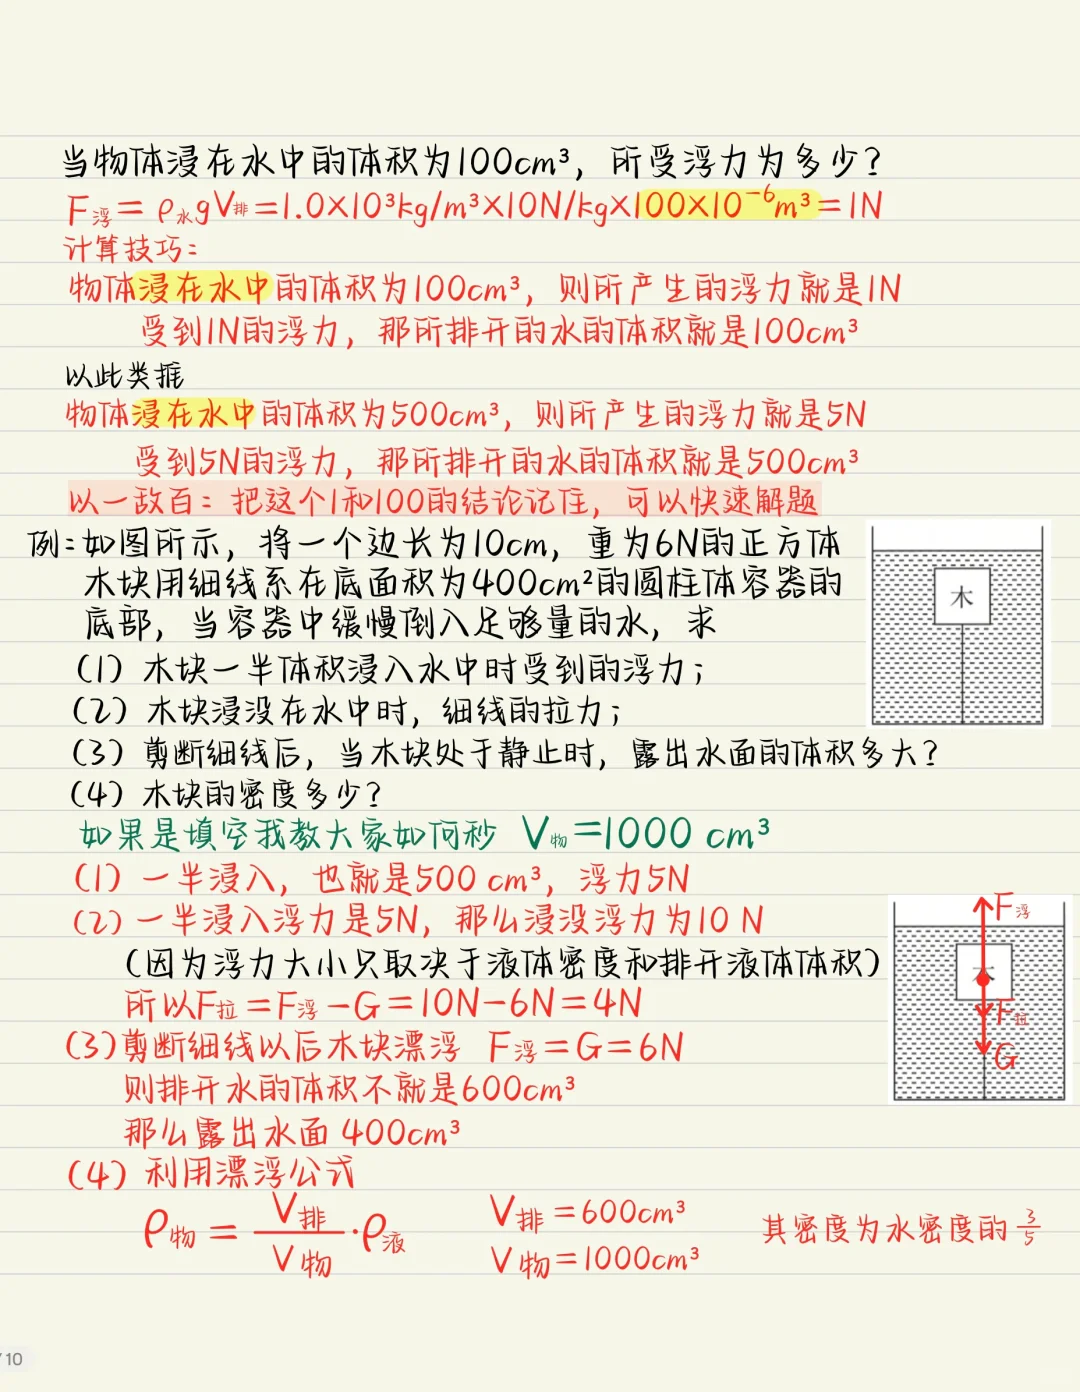 当物体浸在水中的体积为100cm³，所受浮力为多少？
F浮=ρ水gV排=1.0×10³kg/m³×10N/kg×100×10⁻⁶m³=1N
计算技巧：
物体浸在水中的体积为100cm³，则所产生的浮力就是1N
受到1N的浮力，那所排开的水的体积就是100cm³
以此类推
物体浸在水中的体积为500cm³，则所产生的浮力就是5N
受到5N的浮力，那所排开的水的体积就是500cm³
以一敌百：把这个1和100的结论记住，可以快速解题
例：如图所示，将一个边长为10cm，重为6N的正方体
木块用细线系在底面积为400cm²的圆柱体容器的
底部，当容器中缓慢倒入足够量的水，求
（1）木块一半体积浸入水中时受到的浮力；
（2）木块浸没在水中时，细线的拉力；
（3）剪断细线后，当木块处于静止时，露出水面的体积多大？
（4）木块的密度多少？
木
如果是填空我教大家如何秒 V物=1000 cm³
（1）一半浸入，也就是500 cm³，浮力5N
（2）一半浸入浮力是5N，那么浸没浮力为10 N
（因为浮力大小只取决于液体密度和排开液体体积）
所以F拉=F浮-G=10N-6N=4N
（3）剪断细线以后木块漂浮 F浮=G=6N
则排开水的体积不就是600cm³
那么露出水面 400cm³
F浮
木
F拉
G
（4）利用漂浮公式
ρ物=V排/V物·ρ液
V排=600cm³
V物=1000cm³
其密度为水密度的3/5
/10